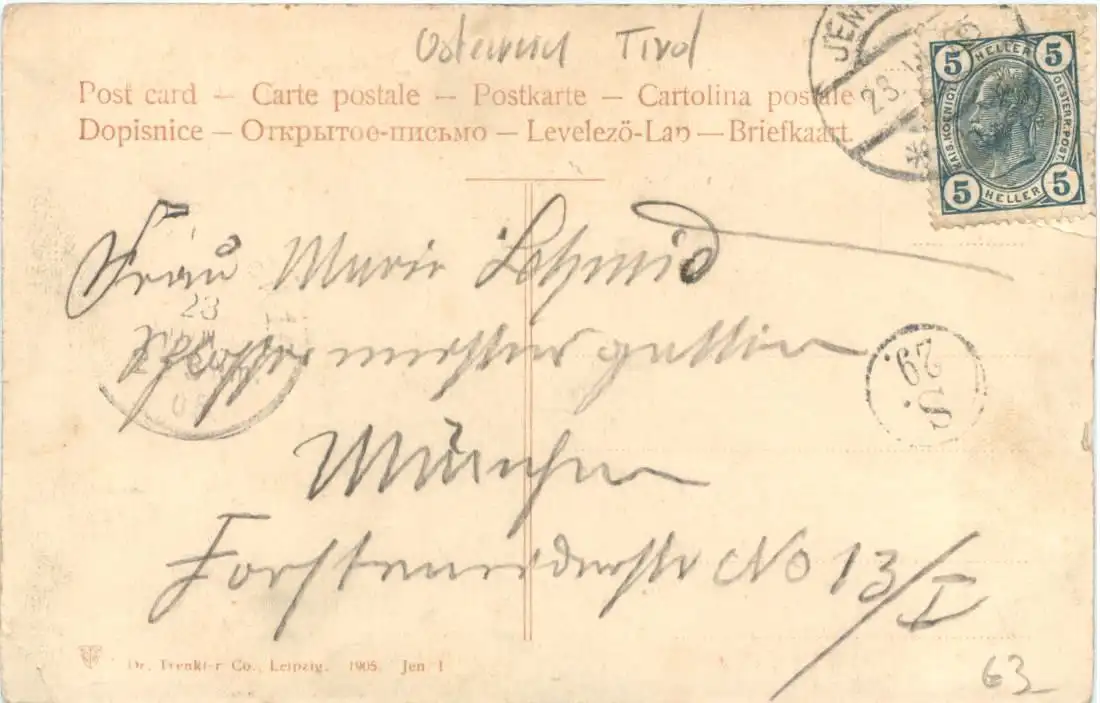 Österreich Tirol
Post card – Carte postale – Postkarte – Cartolina postale
Dopisnice – Открытое-письмо – Levelező-Lap – Briefkaart.
JEN
23.
5 HELLER 5
KAIS. KOENIGL. OESTERR. POST.
5 HELLER 5
Frau Marie Schmid
23
meistersgattin
29.
S.
München
Forstenriederstr No 13/I
Dr. Trenkler Co., Leipzig. 1905. Jen 1
63